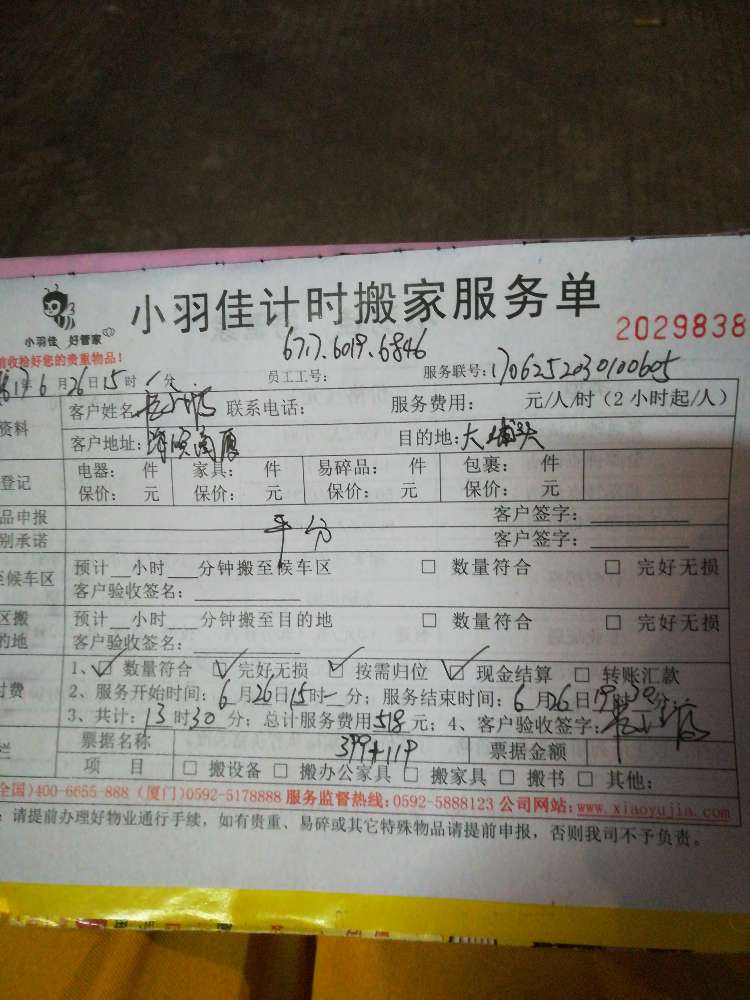 小羽佳 好管家
小羽佳计时搬家服务单
2029838
前收拾好您的贵重物品!
6717.6019.6846
6月26日15时 分 员工工号: 服务联号:1706252030100605
资料 客户姓名: 联系电话: 服务费用: 元/人/时(2小时起/人)
客户地址: 目的地:大埔头
登记 电器: 件 家具: 件 易碎品: 件 包裹: 件
保价: 元 保价: 元 保价: 元 保价: 元
品申报 客户签字:
平分
别承诺 客户签字:
至候车区 预计 小时 分钟搬至候车区 □ 数量符合 □ 完好无损
客户验收签名:
区搬 预计 小时 分钟搬至目的地 □ 数量符合 □ 完好无损
的地 客户验收签名:
付费 1、☑ 数量符合 ☑ 完好无损 ☑ 按需归位 ☑ 现金结算 □ 转账汇款
2、服务开始时间:6月26日15时 分;服务结束时间:6月26日19时30分;
3、共计:13时30分;总计服务费用518元;4、客户验收签字:
栏 票据名称 399+119 票据金额
项 目 □ 搬设备 □ 搬办公家具 □ 搬家具 □ 搬书 □ 其他:
全国)400-6655-888 (厦门)0592-5178888 服务监督热线:0592-5888123 公司网站:www.xiaoyujia.com
:请提前办理好物业通行手续,如有贵重、易碎或其它特殊物品请提前申报,否则我司不予负责。